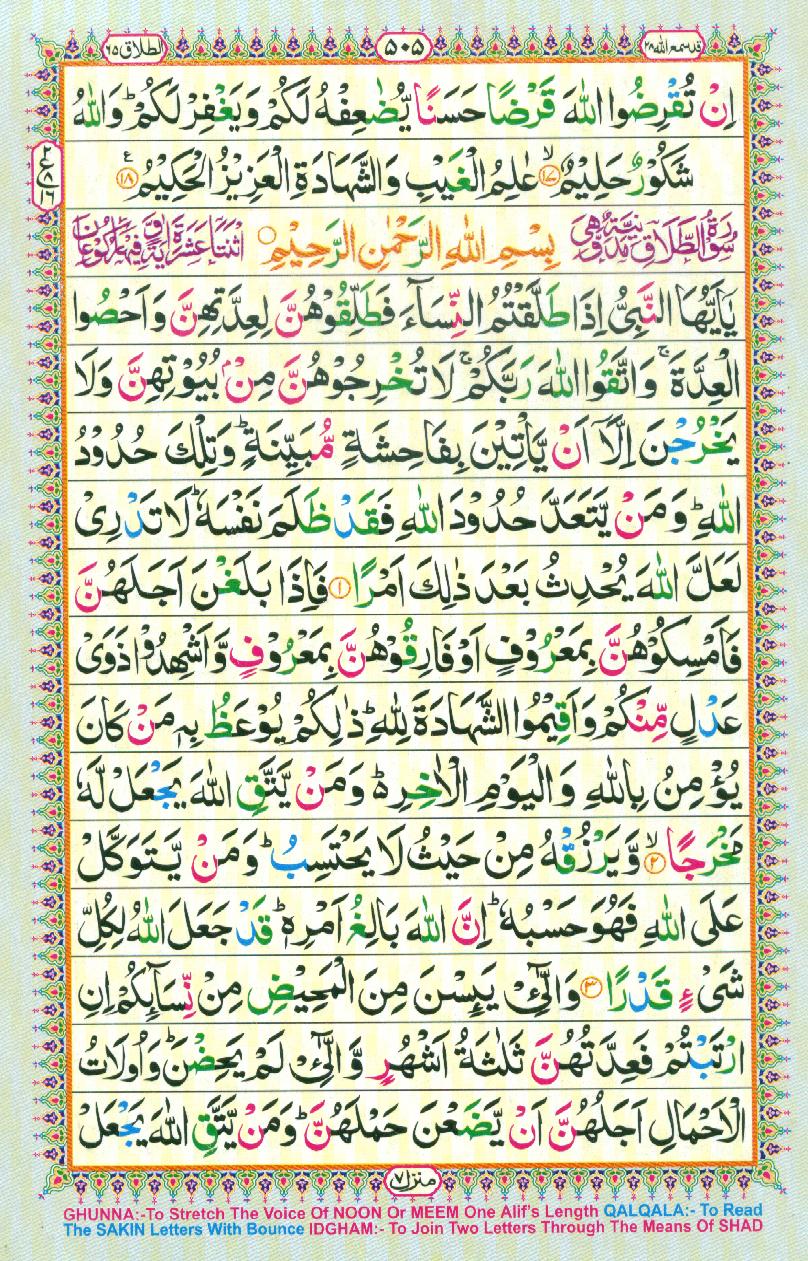 قد سمع الله ٢٨ ۵۰۵ الطلاق ٦۵
اِنْ تُقْرِضُوا اللّٰهَ قَرْضًا حَسَنًا يُّضٰعِفْهُ لَكُمْ وَيَغْفِرْ لَكُمْ ؕ وَاللّٰهُ
شَكُوْرٌ حَلِيْمٌ ۙ‏﴿۱۷﴾ عٰلِمُ الْغَيْبِ وَالشَّهَادَةِ الْعَزِيْزُ الْحَكِيْمُ ﴿۱۸﴾
ع ٢ ٨ ١٦
سُوْرَةُ الطَّلَاقِ مَدَنِيَّةٌ وَّهِيَ بِسْمِ اللّٰهِ الرَّحْمٰنِ الرَّحِيْمِ اثْنَتَا عَشْرَةَ اٰيَةً وَّفِيْهَا رُكُوْعَانِ
يٰۤاَيُّهَا النَّبِىُّ اِذَا طَلَّقْتُمُ النِّسَآءَ فَطَلِّقُوْهُنَّ لِعِدَّتِهِنَّ وَاَحْصُوا
الْعِدَّةَ ۚ وَاتَّقُوا اللّٰهَ رَبَّكُمْ ۚ لَا تُخْرِجُوْهُنَّ مِنْۢ بُيُوْتِهِنَّ وَلَا
يَخْرُجْنَ اِلَّاۤ اَنْ يَّاْتِيْنَ بِفَاحِشَةٍ مُّبَيِّنَةٍ ؕ وَتِلْكَ حُدُوْدُ
اللّٰهِ ؕ وَمَنْ يَّتَعَدَّ حُدُوْدَ اللّٰهِ فَقَدْ ظَلَمَ نَفْسَهٗ ؕ لَا تَدْرِىْ
لَعَلَّ اللّٰهَ يُحْدِثُ بَعْدَ ذٰلِكَ اَمْرًا ﴿۱﴾ فَاِذَا بَلَغْنَ اَجَلَهُنَّ
فَاَمْسِكُوْهُنَّ بِمَعْرُوْفٍ اَوْ فَارِقُوْهُنَّ بِمَعْرُوْفٍ وَّاَشْهِدُوْا ذَوَىْ
عَدْلٍ مِّنْكُمْ وَاَقِيْمُوا الشَّهَادَةَ لِلّٰهِ ؕ ذٰلِكُمْ يُوْعَظُ بِهٖ مَنْ كَانَ
يُؤْمِنُ بِاللّٰهِ وَالْيَوْمِ الْاٰخِرِ ؕ۬ وَمَنْ يَّتَّقِ اللّٰهَ يَجْعَلْ لَّهٗ
مَخْرَجًا ۙ‏﴿۲﴾ وَّيَرْزُقْهُ مِنْ حَيْثُ لَا يَحْتَسِبُ ؕ وَمَنْ يَّتَوَكَّلْ
عَلَى اللّٰهِ فَهُوَ حَسْبُهٗ ؕ اِنَّ اللّٰهَ بَالِغُ اَمْرِهٖ ؕ قَدْ جَعَلَ اللّٰهُ لِكُلِّ
شَىْءٍ قَدْرًا ﴿۳﴾ وَالّٰٓـِٔىْ يَٮِٕسْنَ مِنَ الْمَحِيْضِ مِنْ نِّسَآٮِٕكُمْ اِنِ
ارْتَبْتُمْ فَعِدَّتُهُنَّ ثَلٰثَةُ اَشْهُرٍ وَّالّٰٓـِٔىْ لَمْ يَحِضْنَ ؕ وَاُولَاتُ
الْاَحْمَالِ اَجَلُهُنَّ اَنْ يَّضَعْنَ حَمْلَهُنَّ ؕ وَمَنْ يَّتَّقِ اللّٰهَ يَجْعَلْ
منزل ٧
GHUNNA:-To Stretch The Voice Of NOON Or MEEM One Alif's Length QALQALA:- To Read
The SAKIN Letters With Bounce IDGHAM:- To Join Two Letters Through The Means Of SHAD